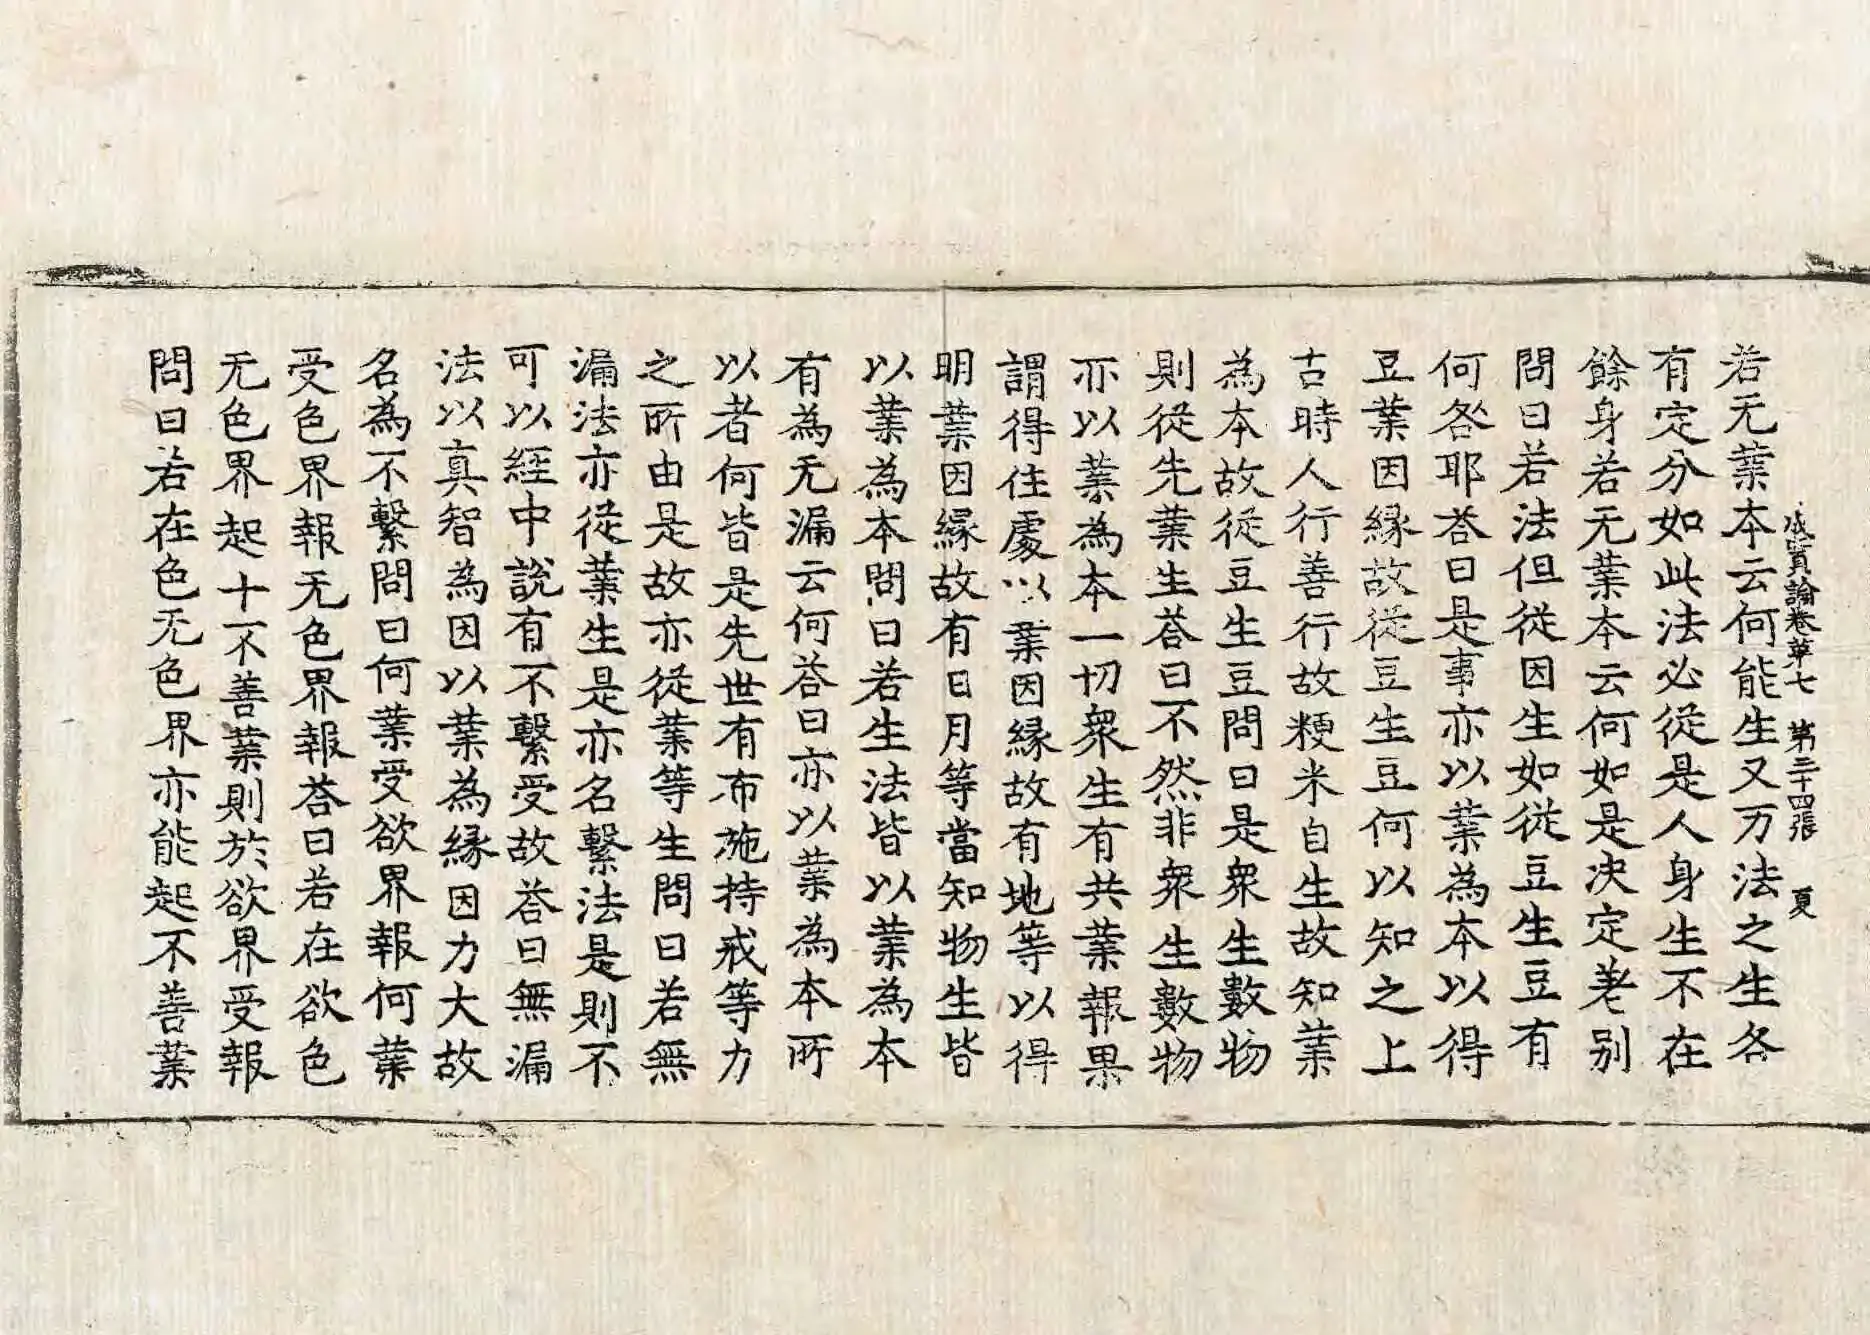 成實論卷苐七　第三十四張　夏
若无葉本云何能生又万法之生各
有定分如此法必從是人身生不在
餘身若无葉本云何如是决定差别
問曰若法但從因生如從豆生豆有
何咎耶荅曰是事亦以葉為本以得
豆葉因縁故從豆生豆何以知之上
古時人行善行故粳米自生故知葉
為本故從豆生豆問曰是衆生數物
則從先葉生荅曰不然非衆生數物
亦以葉為本一切衆生有共葉報果
謂得住處以葉因縁故有地等以得
明葉因縁故有日月等當知物生皆
以葉為本問曰若生法皆以葉為本
有為无漏云何荅曰亦以葉為本所
以者何皆是先世有布施持戒等力
之所由是故亦從葉等生問曰若無
漏法亦從葉生是亦名繫法是則不
可以經中說有不繫受故荅曰無漏
法以真智為因以葉為縁因力大故
名為不繫問曰何葉受欲界報何葉
受色界報无色界報荅曰若在欲色
无色界起十不善葉則於欲界受報
問曰若在色无色界亦能起不善葉